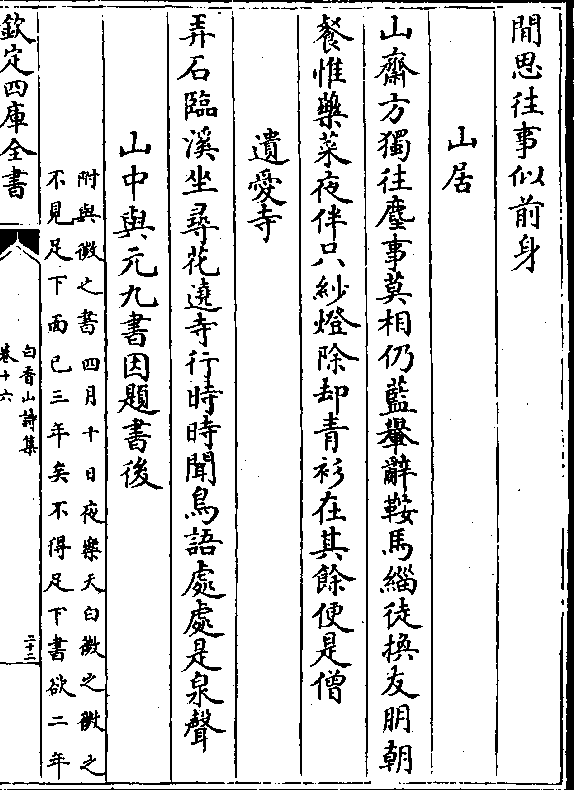 閒思往事似前身
山居
山齋方獨往塵事莫相仍藍轝辭鞍馬緇徒換友朋朝
餐惟藥菜夜伴只紗燈除却青衫在其餘便是僧
遺愛寺
弄石臨溪坐尋花遶寺行時時聞鳥語處處是泉聲
山中與元九書因題書後
附與微之書四月十日夜樂天白微之微之
不見足下面已三年矣不得足下書欲二年
欽定四庫全書
白香山詩集
卷十六
二十三